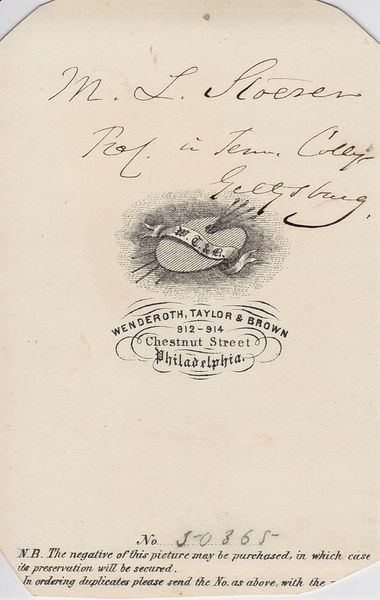 M. L. Stoever
Prof. in Penn. College
Gettysburg.
W. T. & B.
WENDEROTH, TAYLOR & BROWN
912-914
Chestnut Street
Philadelphia.
No. 50865
N.B. The negative of this picture may be purchased, in which case
its preservation will be secured.
In ordering duplicates please send the No. as above, with the